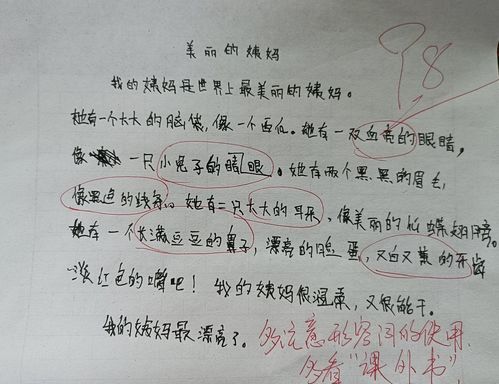 美丽的姨妈
8
我的姨妈是世界上最美丽的姨妈。
她有一个大大的脑袋，像一个西瓜。她有一双血亮的眼睛，
像一只小兔子的眼。她有两个黑黑的眉毛，
像黑色的。她有二只大大的耳朵，像美丽的蝴蝶翅膀。
她有一个长满豆豆的鼻子，漂亮的脸蛋，又白又黄的牙齿
淡红色的嘴吧！我的姨妈很温柔，又很能干。
我的姨妈最漂亮了。
多注意形容词的使用.
多看“课外书”